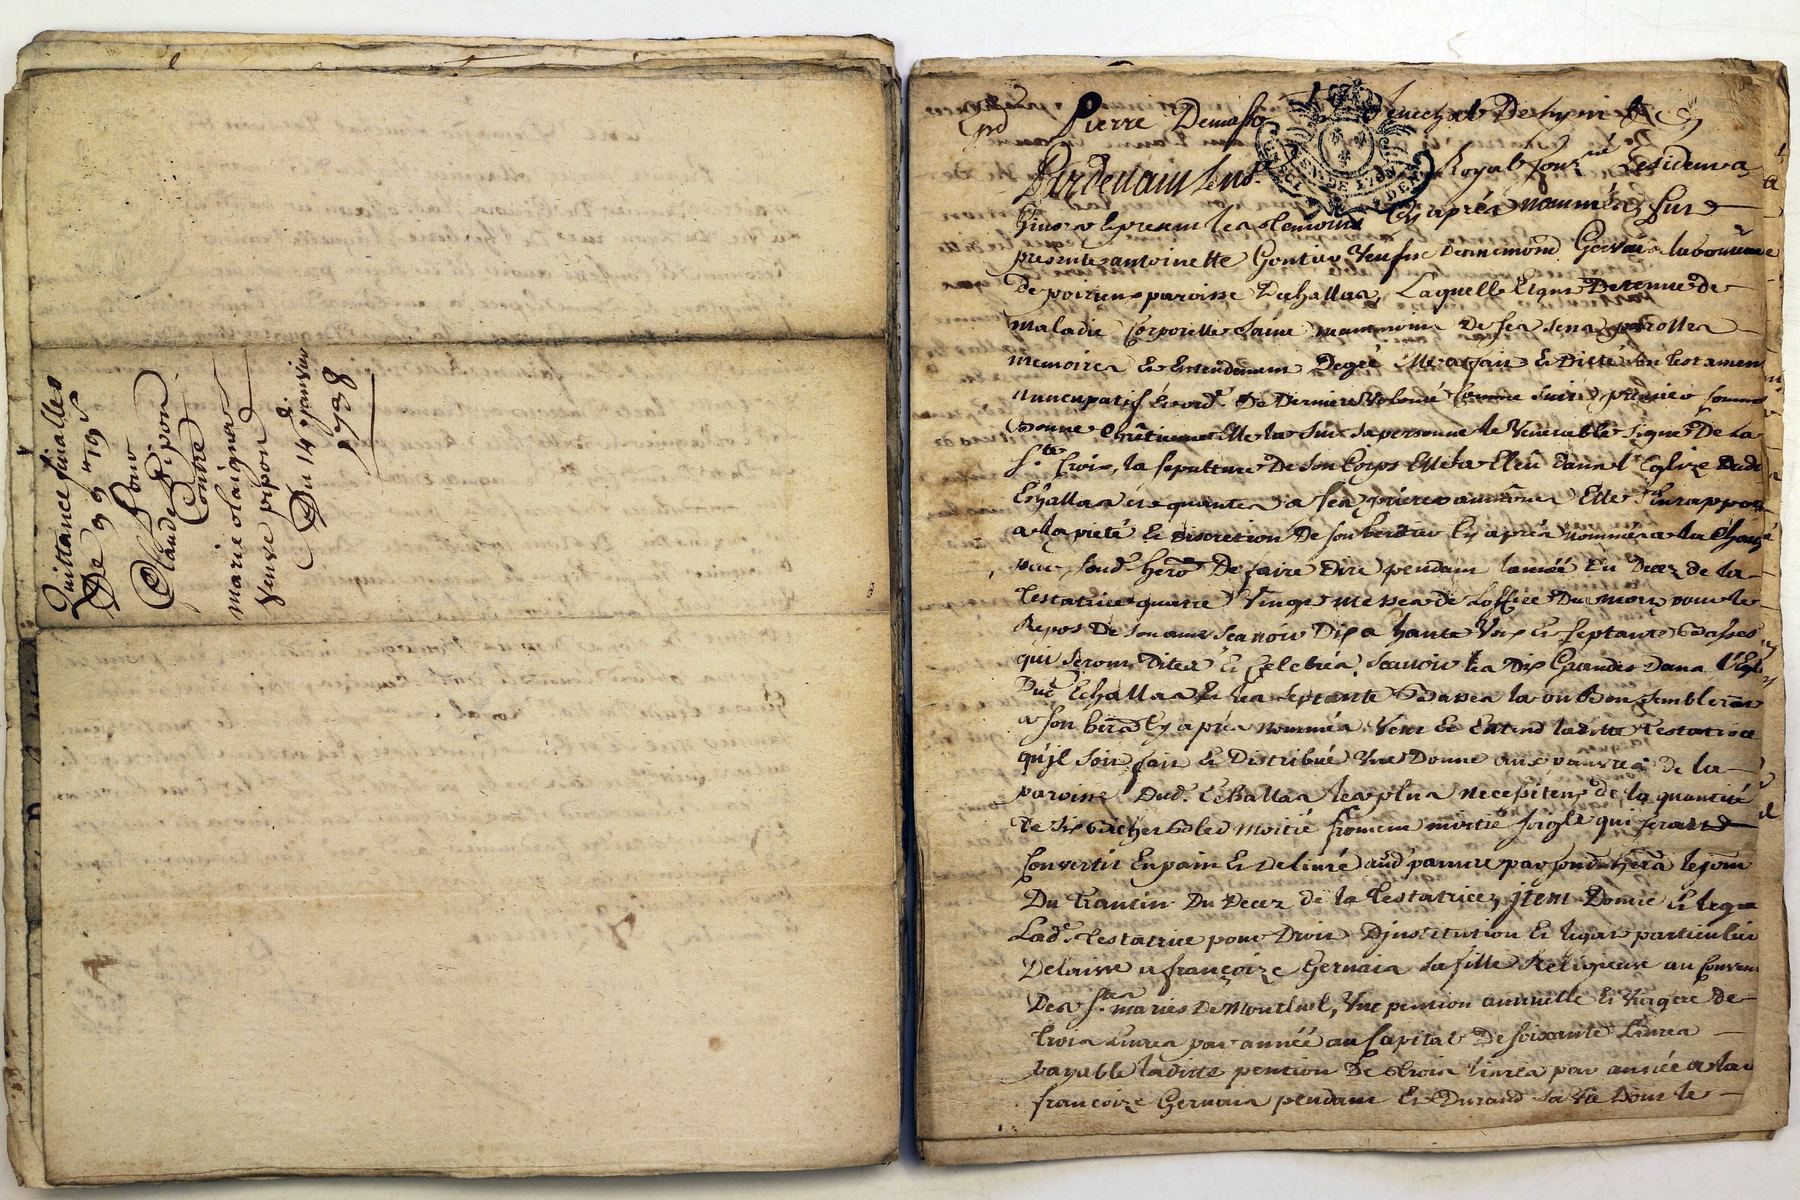 Quittance finalles
De 99ᵗᵗ 19ˢ
Pour
Claude Pipon
Contre
marie olaignier
Veuve pipon
Du 14ᵉ janvier
1738
Pierre Demasso Senechal De Lyon &c
Royal resident a
presents les temoins Cy aprés nommés fut
presente antoinette Gontier Veufve Gervais laboureur
De paroisse Dechallas, Laquelle Etant Detenue de
maladie Corporelle saine neanmoins De ses sens parolles
memoires Et Entendement Degré Elle a fait Et Dicté son testament
nuncupatif Et ordʳᵉ De Derniere Volonté Comme suit premier Comme
Bonne Chrêtienne Elle a fait sur sa personne le Venerable signe De la
Sᵗᵉ Croix, la sepulture De son Corps Elle a Eleû dans l'Eglize dudᵗ
Echallas et quantes a ses prieres aumônes Elle s'en rapporte
a la pieté Et discretion De son heritier Cy aprés nommé a la Charge
par sond. herᵉ De faire Dire pendant l'année Du Decez de la
Testatrice quatre Vingt Messes de L'office Des morts pour le
Repos De son ame scavoir Dix a haute Voix Et septante Basses
qui seront Dites Et Celebrés scavoir les Dix Grandes Dans l'Egl
Dud Echallas Et les septante Basses la ou Bon semblera
a son herᵉ Cy aprés nommé, Veut Et Entend laditte Testatrice
qu'jl soit fait Et Distribué Une Donne aux pauvres de la
paroisse Dud. Echallas les plus necessiteux de la quantité
De six Bichet Bled moitié froment moitié soigle qui serat
Convertit En pain Et Delivré aud pauvre par sond. herᵉ le jour
Du trantin Du Decez de la Testatrice, jtem Donne Et legue
Ladᵉ. Testatrice pour Droit D'institution Et legat particulier
Delaisse a françoize Gervais sa fille Religieuse au Couvent
Des Sᵗᵉˢ maries De Montluel, Une pension annuelle Et Viagere de
trois Livres par année au Capital De soixante Livres
payable laditte pention De trois livres par année a lad
françoize Gervais pendant Et Durand sa Vie Dont le